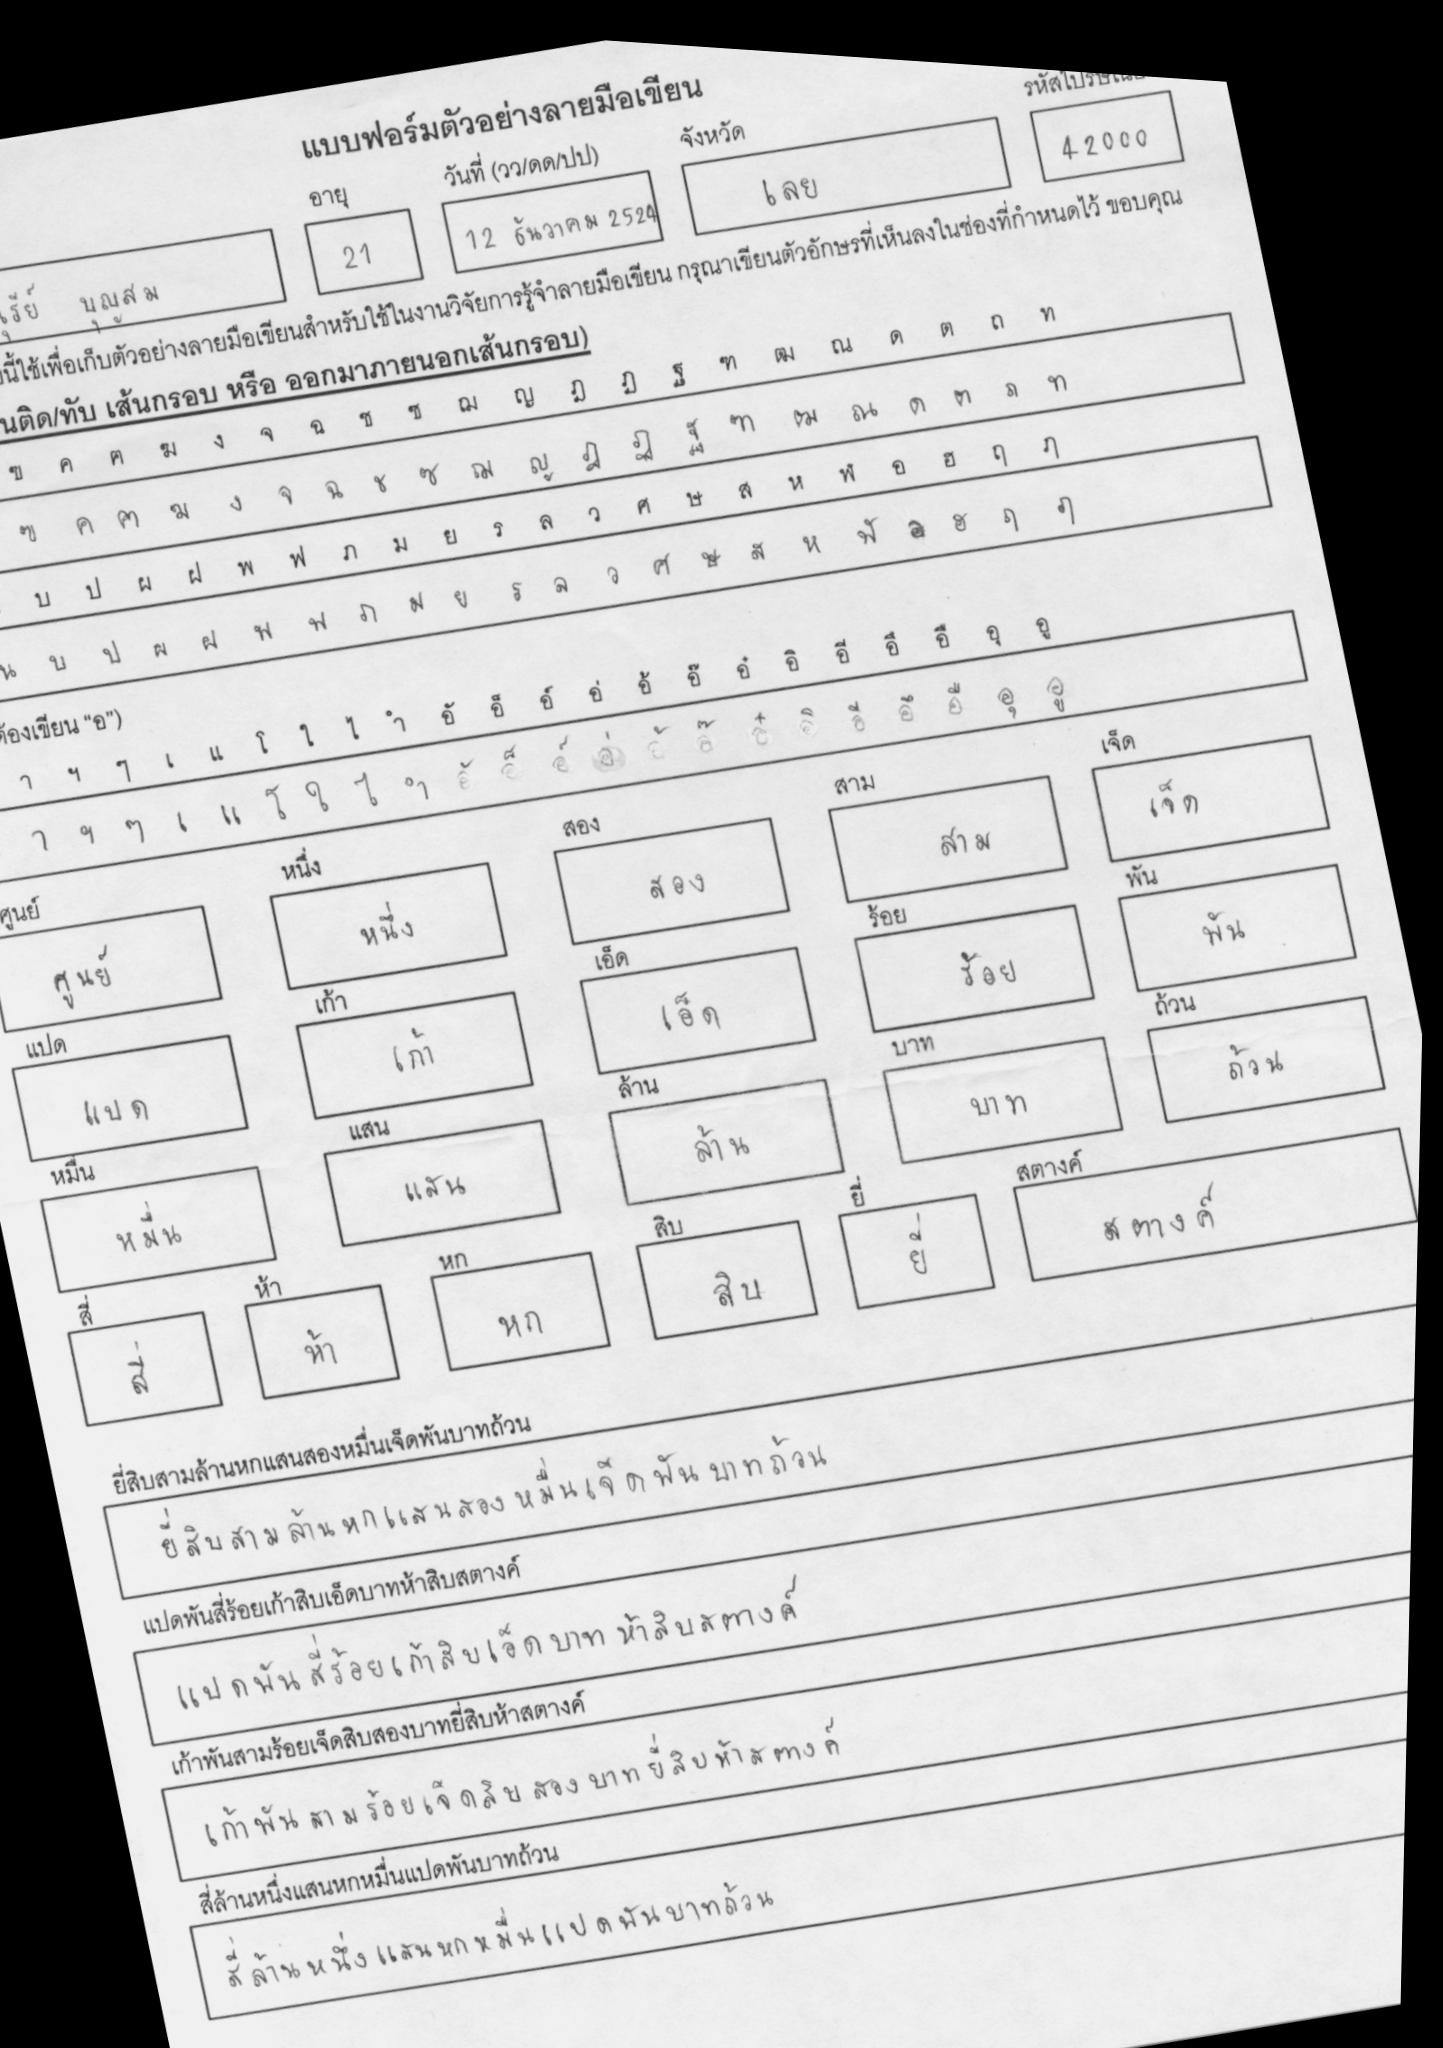 แบบฟอร์มตัวอย่างลายมือเขียน
อายุ วันที่ (วว/ดด/ปป) จังหวัด
บุญสม 21 12 ธันวาคม 2524 เลย 42000
นี้ใช้เพื่อเก็บตัวอย่างลายมือเขียนสำหรับใช้ในงานวิจัยการรู้จำลายมือเขียน กรุณาเขียนตัวอักษรที่เห็นลงในช่องที่กำหนดไว้ ขอบคุณ
เส้นกรอบ หรือ ออกมาภายนอกเส้นกรอบ)
ข ค ฅ ฆ ง จ ฉ ช ซ ฌ ญ ฎ ฏ ฐ ฑ ฒ ณ ด ต ถ ท
ข ค ฅ ฆ ง จ ฉ ช ซ ฌ ญ ฎ ฏ ฐ ฑ ฒ ณ ด ต ถ ท
บ ป ผ ฝ พ ฟ ภ ม ย ร ล ว ศ ษ ส ห ฬ อ ฮ ฤ ฦ
น บ ป ผ ฝ พ ฟ ภ ม ย ร ล ว ศ ษ ส ห ฬ อ ฮ ฤ ฦ
ต้องเขียน "อ")
า ฯ ๆ เ แ โ ใ ไ ำ อั อ็ อ์ อ่ อ้ อ๊ อ๋ อิ อี อึ อื อุ อู
า ฯ ๆ เ แ โ ใ ไ ำ อั อ็ อ์ อ่ อ้ อ๊ อ๋ อิ อี อึ อื อุ อู
ศูนย์ หนึ่ง สอง สาม เจ็ด
ศูนย์ หนึ่ง สอง สาม เจ็ด
แปด เก้า เอ็ด ร้อย พัน
แปด เก้า เอ็ด ร้อย พัน
หมื่น แสน ล้าน บาท ถ้วน
หมื่น แสน ล้าน บาท ถ้วน
สี่ ห้า หก สิบ ยี่ สตางค์
สี่ ห้า หก สิบ ยี่ สตางค์
ยี่สิบสามล้านหกแสนสองหมื่นเจ็ดพันบาทถ้วน
ยี่สิบสามล้านหกแสนสองหมื่นเจ็ดพันบาทถ้วน
แปดพันสี่ร้อยเก้าสิบเอ็ดบาทห้าสิบสตางค์
แปดพันสี่ร้อยเก้าสิบเอ็ดบาทห้าสิบสตางค์
เก้าพันสามร้อยเจ็ดสิบสองบาทยี่สิบห้าสตางค์
เก้าพันสามร้อยเจ็ดสิบสองบาทยี่สิบห้าสตางค์
สี่ล้านหนึ่งแสนหกหมื่นแปดพันบาทถ้วน
สี่ล้านหนึ่งแสนหกหมื่นแปดพันบาทถ้วน